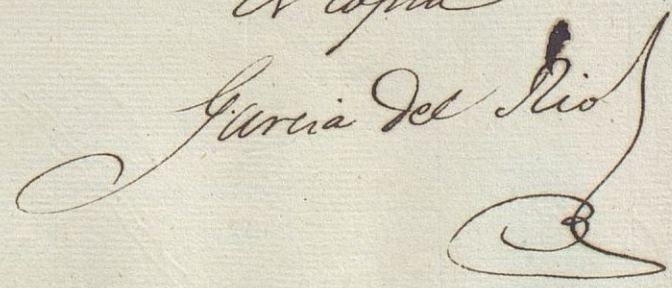 Es copia
García del Rio